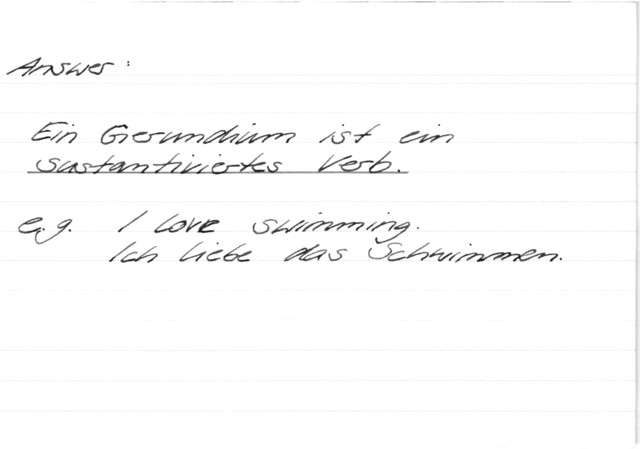 Answer:
Ein Gerundium ist ein
sustantiviertes Verb.
e.g. I love swimming.
Ich liebe das Schwimmen.